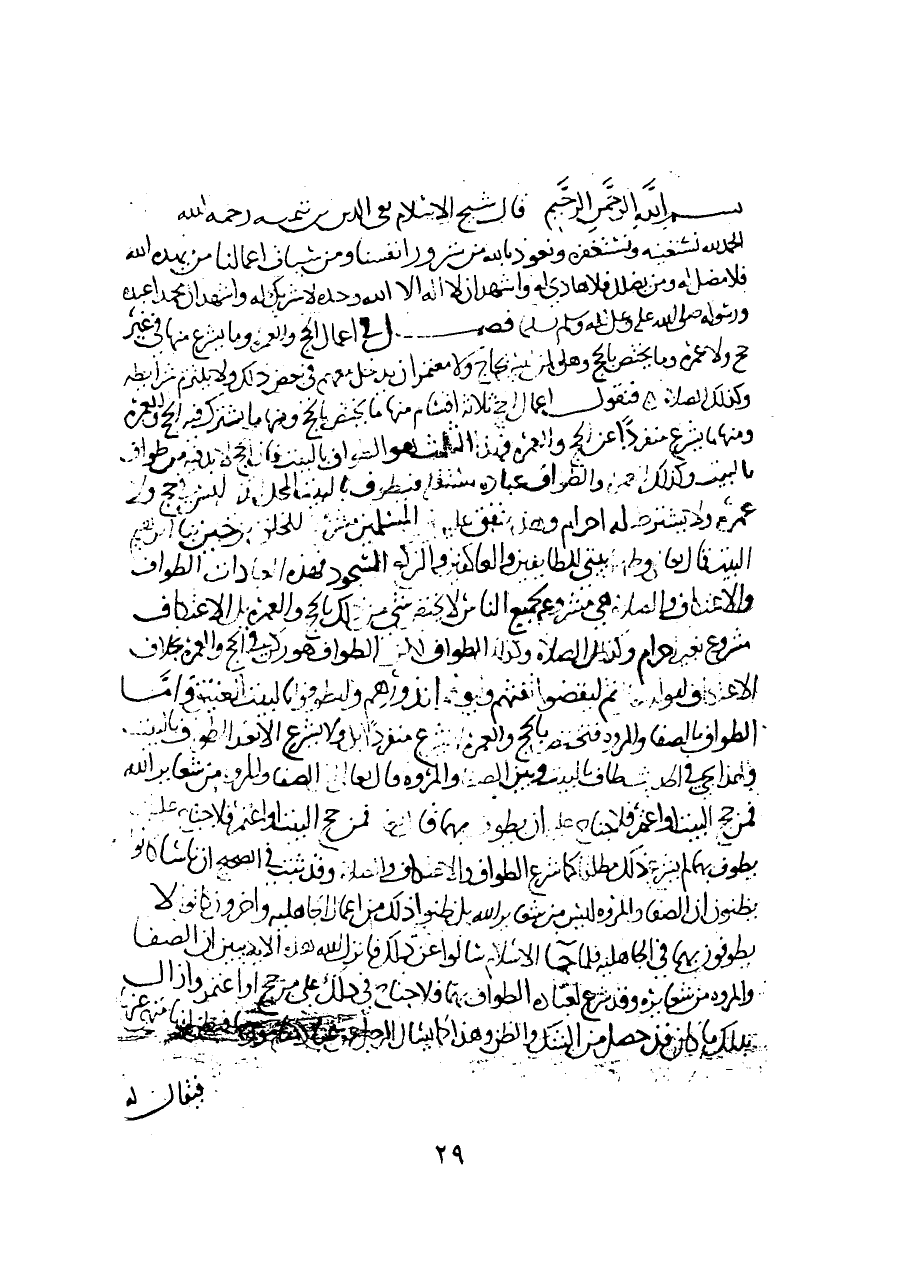 بسم الله الرحمن الرحيم قال شيخ الاسلام تقي الدين بن تيميه رحمه الله
الحمد لله نستعينه ونستغفره ونعوذ بالله من شرور انفسنا ومن سيات اعمالنا من يهده الله
فلا مضل له ومن يضلل فلا هادي له واشهد ان لا اله الا الله وحده لا شريك له واشهد ان محمدا عبده
ورسوله صلى الله عليه وعلى اله وسلم تسليما فصل في اعمال الحج والعمره وما يشرع منها في غير
حج ولا عمره وما يختص بالحج وهل لمن ليس بحاج ولا معتمر ان يدخل معهم في بعض ذلك ولا يلتزم شرايطه
وكذلك الصلاة فنقول اعمال الحج ثلاثة اقسام منها ما يختص بالحج ومنها ما يشترك فيه الحج والعمره
ومنها ما يشرع منفردا عن الحج والعمره فهذا الثالث هو الطواف بالبيت فان الحج لا بد فيه من طواف
بالبيت وكذلك العمره والطواف عباده مستقله فيطوف بالبيت المحل الذي ليس في حج ولا
عمرة ولا يشترط له احرام وهذا متفق عليه المسلمين للخلق من حين بنا ابراهيم
البيت قال تعالى وطهر بيتي للطايفين والعاكفين والركع السجود فهذه العبادات الطواف
والاعتكاف والصلاة هي مشروعه لجميع الناس لا يختص شي من ذلك بالحج والعمره بل الاعتكاف
مشروع بغير احرام وكذلك الصلاة وكذلك الطواف لكن الطواف هو ركن في الحج والعمره بخلاف
الاعتكاف لقوله ثم ليقضوا تفثهم وليوفوا نذورهم وليطوفوا بالبيت العتيق واما
الطواف بالصفا والمروه فيختص بالحج والعمره لا يشرع منفردا بل ولا يشرع الا بعد الطواف بالبيت
ولهذا يجي في الحديث طاف بالبيت وبين الصفا والمروه قال تعالى ان الصفا والمروه من شعاير الله
فمن حج البيت او اعتمر فلا جناح عليه ان يطوف بهما فمن حج البيت او اعتمر فلا جناح عليه
يطوف بهما لم يشرع ذلك مطلقا كما شرع الطواف والاعتكاف والصلاة وقد ثبت في الصحيح ان ناسا كانوا
يظنون ان الصفا والمروه ليس من شعاير الله بل ظنوا ذلك من اعمال الجاهليه واخرون كانوا لا
يطوفون بهما في الجاهليه فلما جا الاسلام سالوا عن ذلك فانزل الله هذه الايه يبين ان الصفا
والمروه من شعايره وقد شرع لعباده الطواف بهما فلا جناح في ذلك على من حج او اعتمر وازال
بذلك ما كان قد حصل من الشك والظن وهذا كما يسال الرجل
فيقال له
٢٩